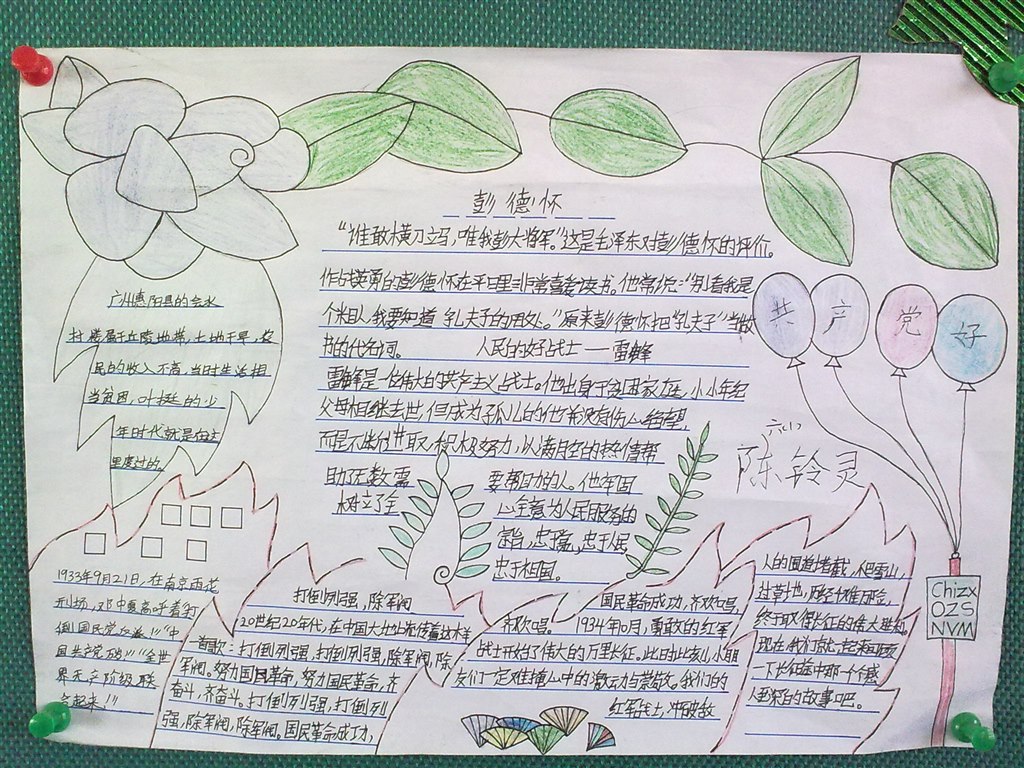 彭德怀
“谁敢横刀立马，唯我彭大将军。”这是毛泽东对彭德怀的评价。
作战英勇的彭德怀在平日里非常喜爱读书。他常说：“别看我是
个米旦，我要知道孔夫子的用处。”原来彭德怀把“孔夫子”当做
书的代名词。
人民的好战士——雷锋
雷锋是一位伟大的共产主义战士。他出身于贫困家庭，小小年纪
父母相继去世，但成为孤儿的他并没有伤心绝望，
而是不断进取，积极努力，以满月空的热情帮
助了无数需
要帮助的人。他牢固
树立了全
心全意为人民服务的
宗旨，忠于党，忠于人民
忠于祖国。
广州惠阳县的会水
村楼属于丘陵地带，土地干旱，农
民的收入不高，当时生活相
当贫困，叶挺的少
年时代就是在这
里度过的。
共产党好
六（1）
陈铃灵
Chizx
OZS
NVM
1933年9月21日，在南京雨花
刑场，邓中夏高呼着“打
倒国民党反动派！”“中
国共产党万岁！”“全世
界无产阶级联
合起来！”
打倒列强，除军阀
20世纪20年代，在中国大地上流传着这大样
首歌：打倒列强，打倒列强，除军阀，除
军阀。努力国民革命，努力国民革命，齐
奋斗，齐奋斗。打倒列强，打倒列
强，除军阀，除军阀。国民革命成功，
国民革命成功，齐欢唱，
齐欢唱。 1934年10月，勇敢的红军
战士开始了伟大的万里长征。此时此刻，小朋
友们一定难掩心中的激动与崇敬。我们的
红军战士，冲破敌
人的围追堵截，爬雪山，
过草地，历经千难万险，
终于取得长征的伟大胜利。
现在，我们就一起来回顾
一下长征途中那一个个感
人至深的故事吧。